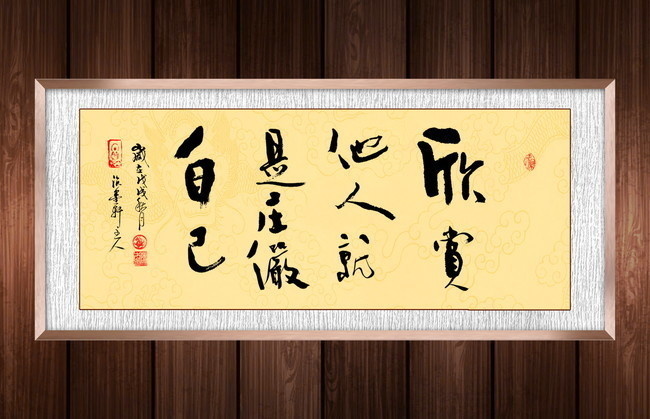 欣賞
他人就
是庄儼
自己
歲在戊戌秋月
墨軒主人